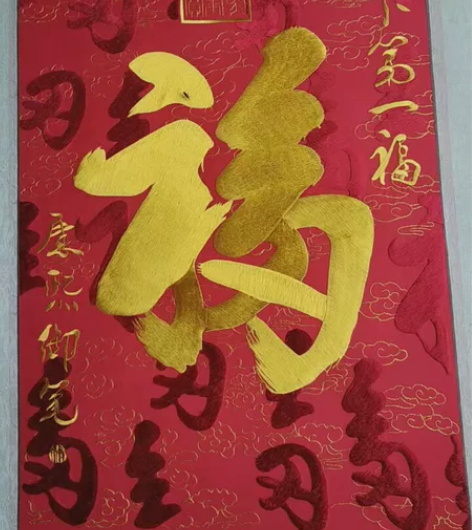 下第一福
福
康熙御笔